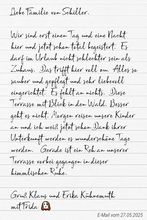 Liebe Familie von Schiller.
Wir sind erst einen Tag und eine Nacht
hier und jetzt schon total begeistert. Es
darf im Urlaub nicht schlechter sein als
Zuhause. Das trifft hier voll zu. Alles so
sauber und gepflegt und sehr liebevoll
eingerichtet. Es fehlt an nichts. Diese
Terrasse mit Blick in den Wald. Besser
geht es nicht. Morgen reisen unsere Kinder
an und ich weiß jetzt schon, Dank ihrer
Unterkunft werden es wunderschöne Tage
werden. Gerade ist ein Reh an unserer
Terrasse vorbei gegangen in dieser
himmlischen Ruhe.
Gruß Klaus und Erika Kühnemuth
mit Frida
E-Mail vom 27.05.2025